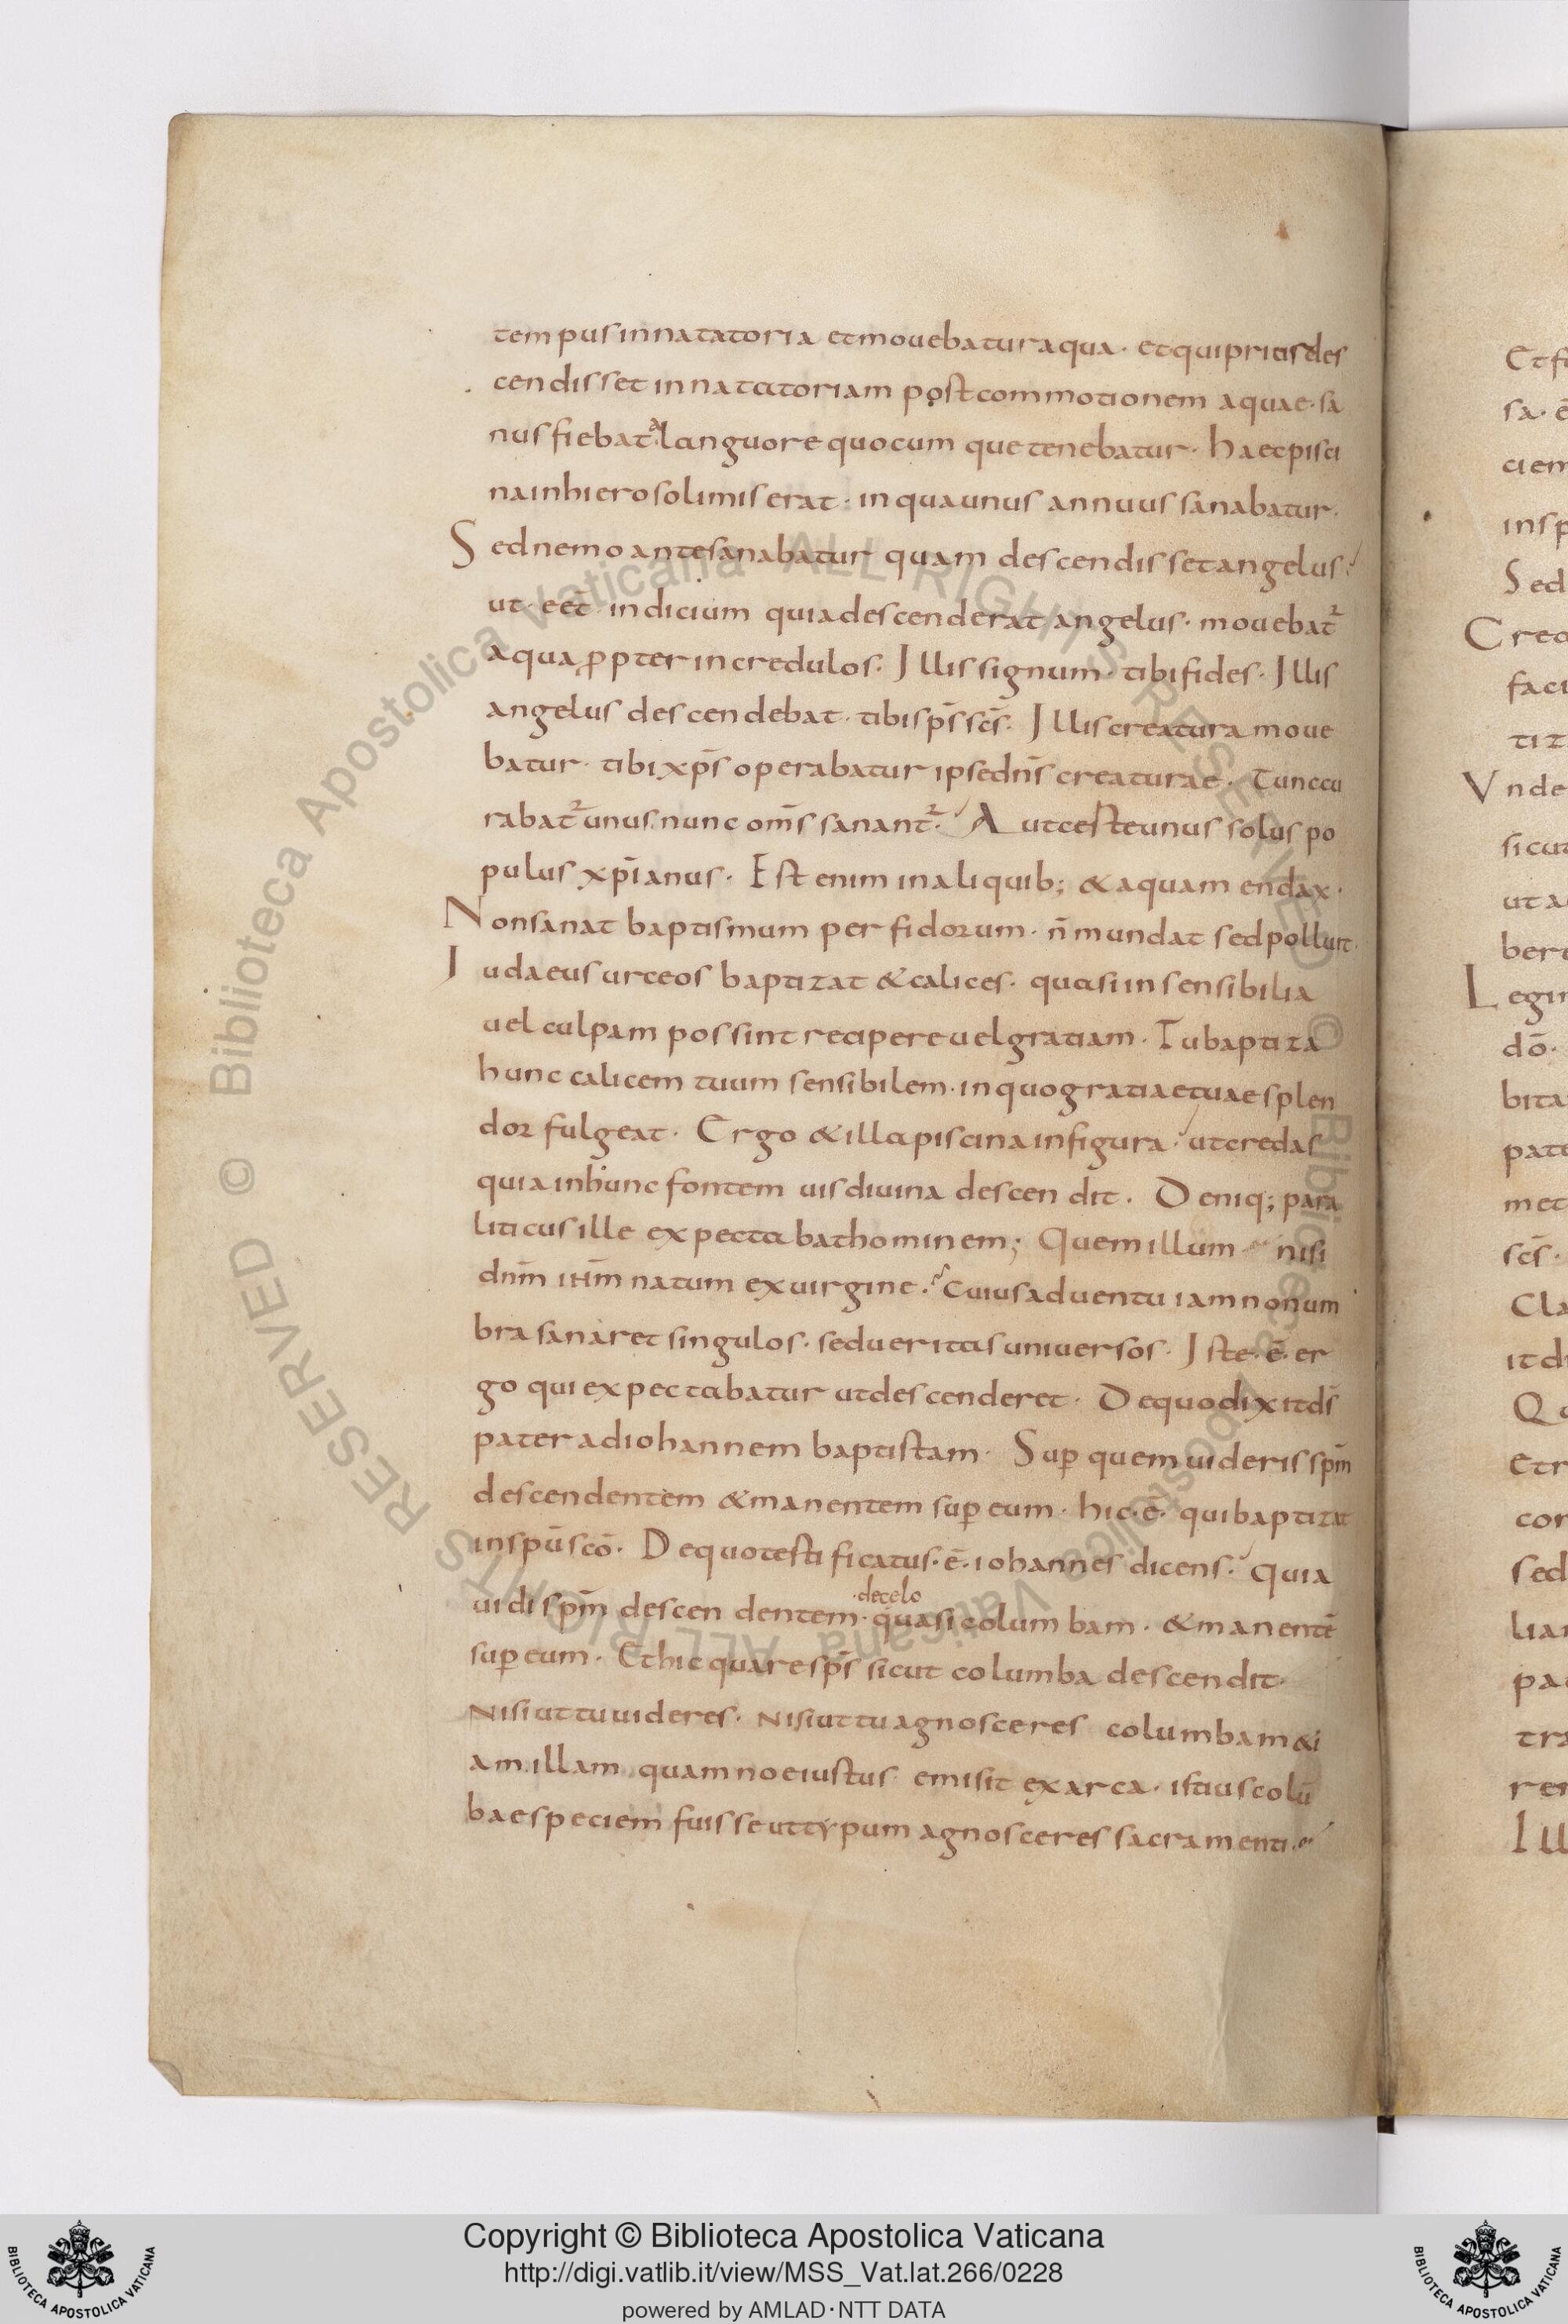 tempus in natatoria et mouebatur aqua · et qui prius des
cendisset in natatoriam post commotionem aquae · sa
nus fiebat a languore quocumque tenebatur · haec pisci
na in hierosolimis erat · in qua unus annuus sanabatur ·
Sed nemo ante sanabatur quam descendisset angelus ·
ut · eēt · indicium quia descenderat angelus · mouebat᷑
aqua ꝓpter incredulos · Illis signum · tibi fides · Illis
angelus descendebat · tibi sp̄s sc̄s · Illis creatura moue
batur · tibi xp̄s operabatur ipse dn̄s creaturae · Tunc cu
rabat᷑ unus · nunc om̄s sanant᷑ · Aut certe unus solus po
pulus xp̄ianus · Est enim in aliquib; & aqua mendax ·
Non sanat baptismum perfidorum · n̄ mundat sed polluit ·
Iudaeus urceos baptizat & calices · quasi insensibilia
uel culpam possint recipere uel gratiam · Tu baptiza
hunc calicem tuum sensibilem · in quo gratiae tuae splen
dor fulgeat · Ergo & illa piscina in figura · ut credas
quia in hunc fontem uis diuina descendit · Deniq; para
liticus ille expectabat hominem; Quem illum nisi
dn̄m ih̄m natum ex uirgine · Cuius aduentu iam non um
bra sanaret singulos · sed ueritas uniuersos · Iste · ē · er
go qui expectabatur ut descenderet · De quo dixit ds̄
pater ad iohannem baptistam · Sup̄ quem uideris sp̄m
descendentem & manentem sup̄ eum · hic · ē · qui baptizat
in spū scō · De quo testificatus · ē · iohannes dicens · quia
uidi sp̄m descendentem · quasi columbam · & manentē
·de celo
sup̄ eum · Et hic quare sp̄s sicut columba descendit ·
Nisi ut tu uideres · Nisi ut tu agnosceres columbam &i
am illam quam noe iustus emisit ex arca · istius colū
bae speciem fuisse ut typum agnosceres sacramenti ·
Copyright © Biblioteca Apostolica Vaticana
http://digi.vatlib.it/view/MSS_Vat.lat.266/0228
powered by AMLAD·NTT DATA